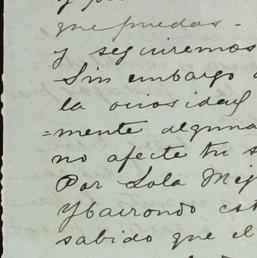 y p
que puedas -
y seguiremos
Sin embargo
la ociosidad
=mente alguna
no afecte tu s
Por Lola Mej
Ybairondo est
sabido que el